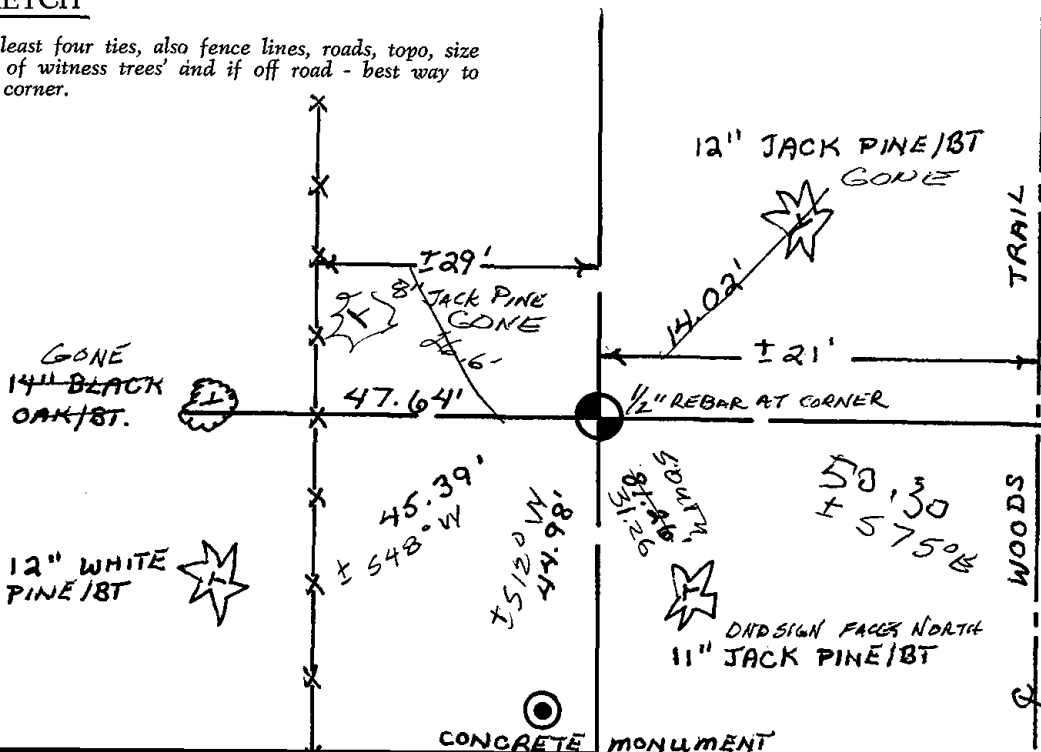 least four ties, also fence lines, roads, topo, size
of witness trees' and if off road - best way to
corner.
12" JACK PINE/BT
GONE
TRAIL
±29'
8" JACK PINE
GONE
14.02'
±21'
GONE
14" BLACK
OAK/BT.
47.64'
1/2" REBAR AT CORNER
45.39'
± S48° W
± S12° W
44.98'
SOUTH
31.26
50.30
± S75°E
WOODS
12" WHITE
PINE/BT
DND SIGN FACES NORTH
11" JACK PINE/BT
CONCRETE MONUMENT